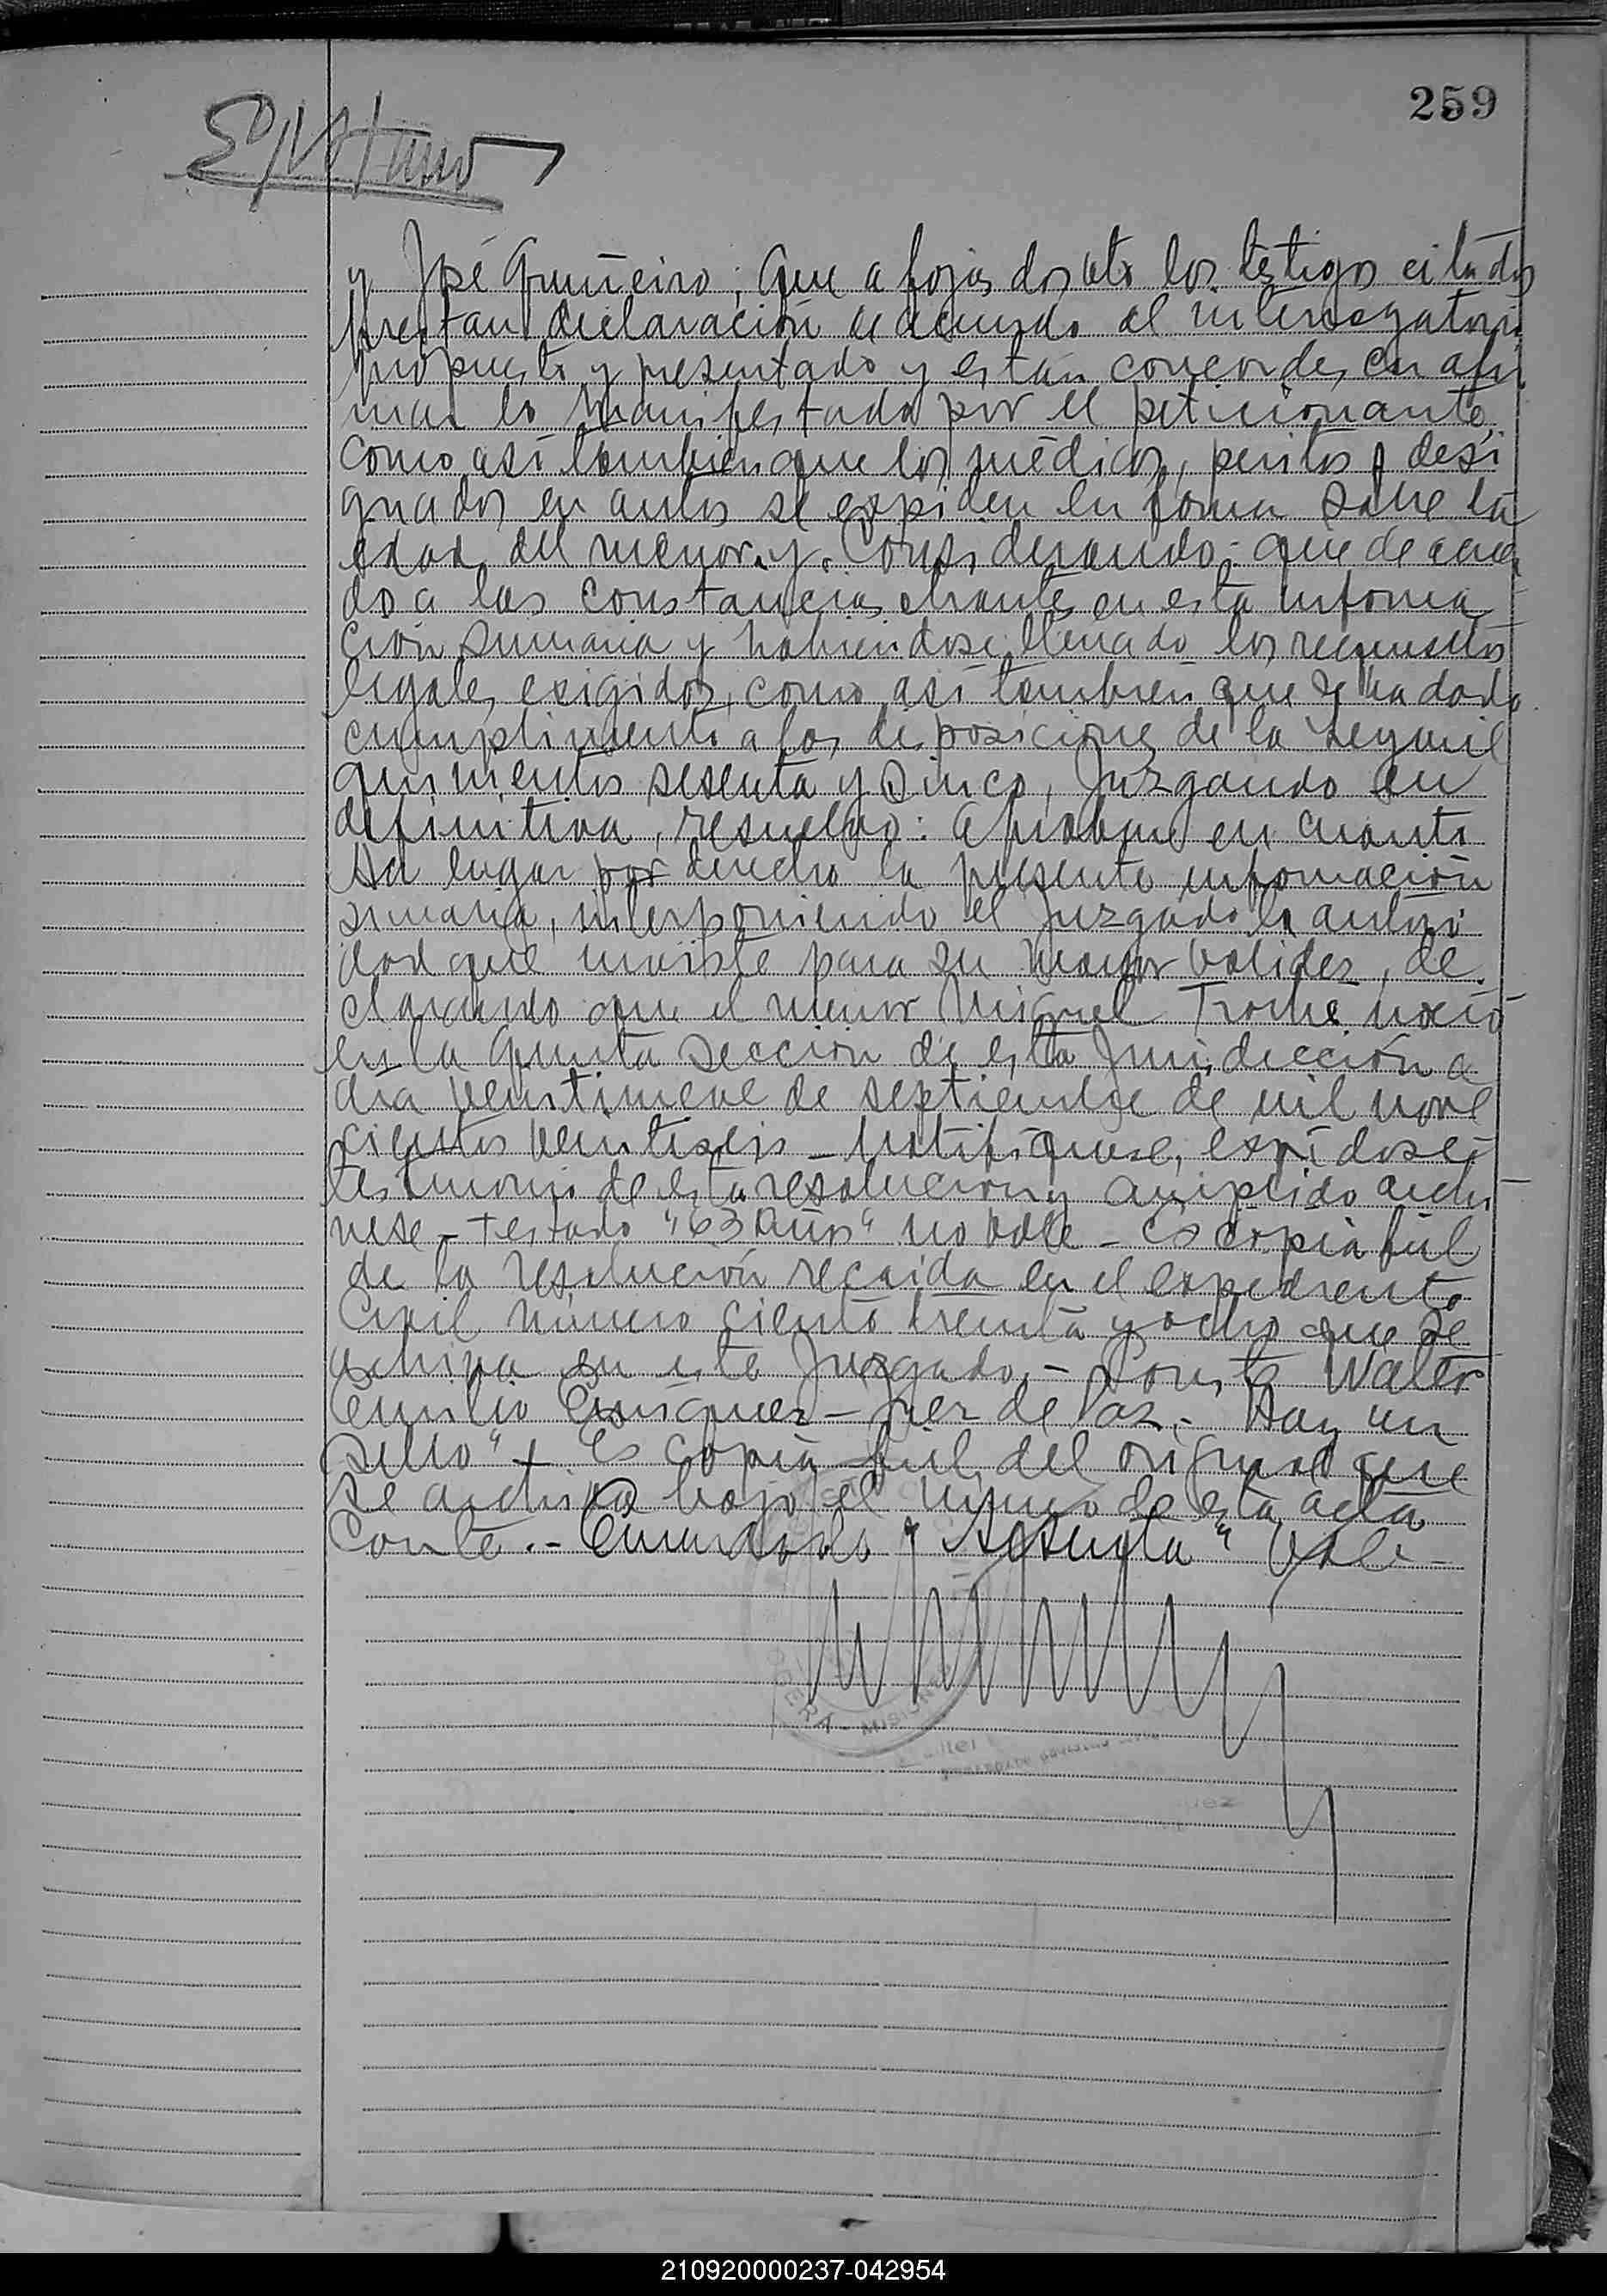 259
y José Gruñeiro; que a fojas dos vta los testigos citados
prestan declaración de acuerdo al interrogatorio
propuesto y presentado y están concordes en afir
mar lo manifestado por el peticionante,
como así tambien que los médicos, peritos desi
gnados en autos se expiden en forma sobre la
edad del menor y. Considerando: que de acuer
do a las constancias obrantes en esta informa
ción sumaria y habiendose llenado los requisitos
legales exigidos, como así tambien que se ha dado
cumplimiento a las disposiciones de la Ley mil
quinientos sesenta y cinco, Juzgando en
definitiva, resuelvo: Aprobar en cuanto
ha lugar por derecho la presente información
sumaria, interponiendo el Juzgado la autori
dad que inviste para su mayor validez, de
clarando que el menor Miguel nació
en la quinta sección de esta Jurisdicción el
día veintinueve de septiembre de mil nove
cientos veintiseis - Notifíquese, expídase
testimonio de esta resolución y cumplido archi
vese - Testado "63 años" no vale - Es copia fiel
de la resolución recaída en el expediente
Civil número ciento treinta y ocho que se
archiva en este Juzgado. - Conste Walter
Emilio Enriquez - Juez de Paz. - Hay un
sello" - Es copia fiel del original que
se archiva bajo el número de esta acta
Conste. - Enmendado "sesenta" Vale -
MISIONES
210920000237-042954